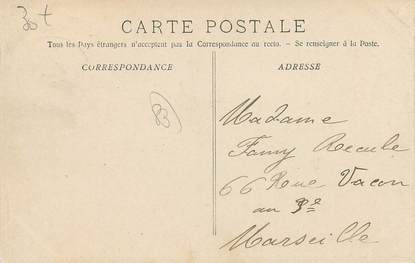 30t
CARTE POSTALE
Tous les Pays étrangers n'acceptent pas la Correspondance au recto. – Se renseigner à la Poste.
CORRESPONDANCE
ADRESSE
83
Madame
Fanny Recule
66 Rue Vacon
au 3e
Marseille